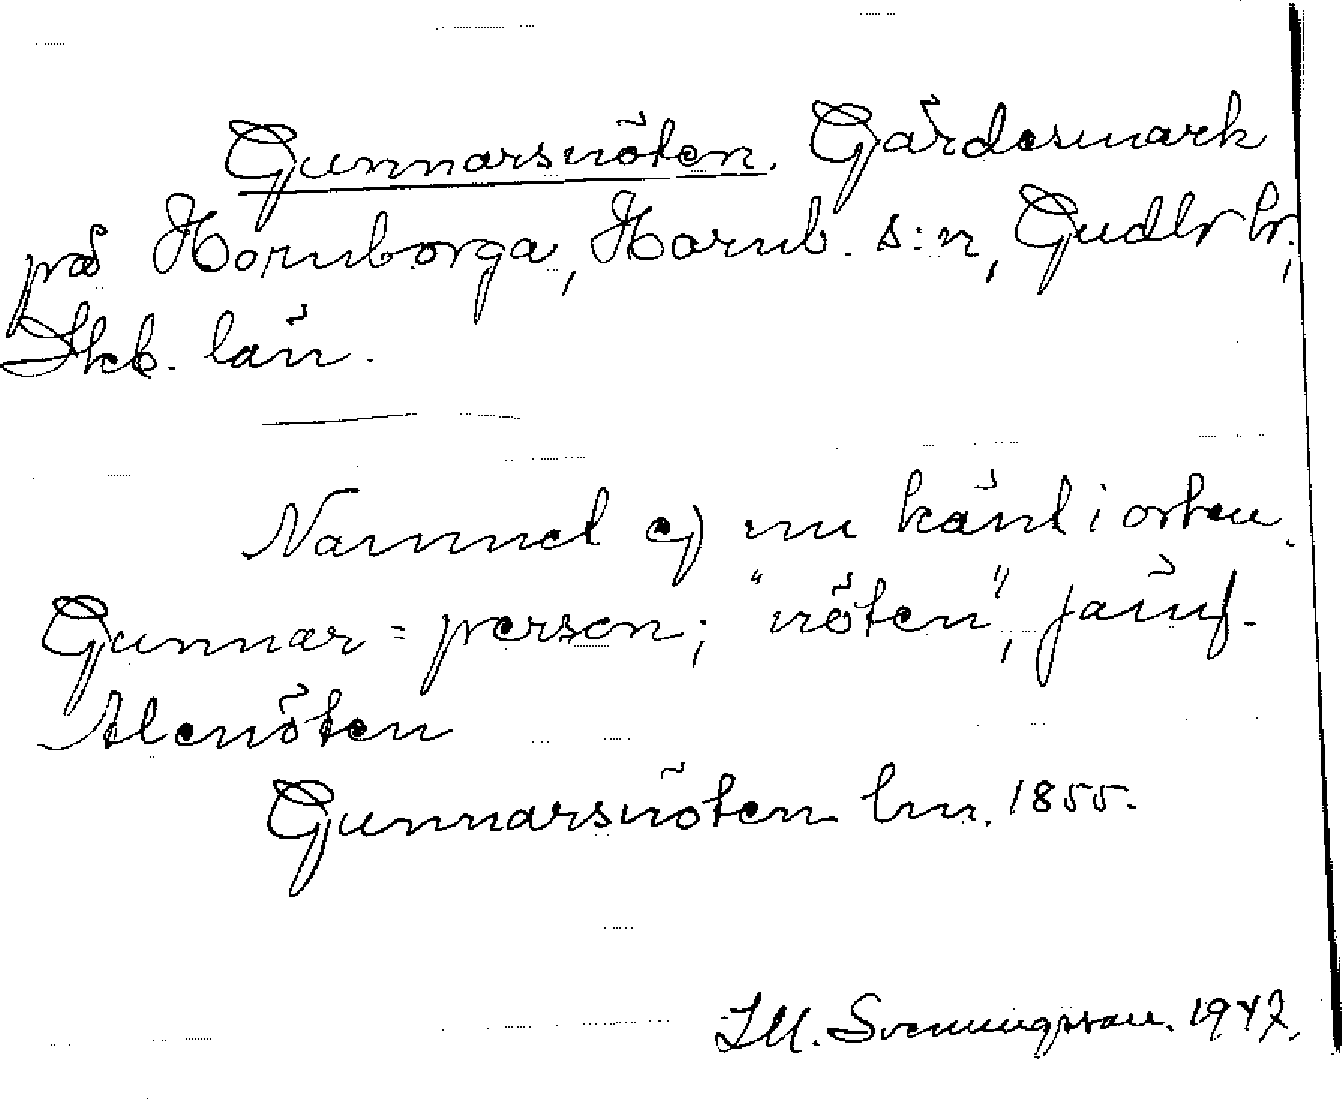 Gunnarsnöten. Gärdesmark
på Hornborga, Hornb. s:n, Gudh. hr,
Skb. län.
Namnet ej nu känt i orten.
Gunnar = person; "nöten", jämf.
Alenöten
Gunnarsnöten lm. 1855.
Svenungsson. 1947.